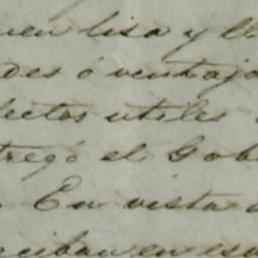 uen lisa y ll
des ó ventaja
fectos utiles
tregó el Gob
En vista